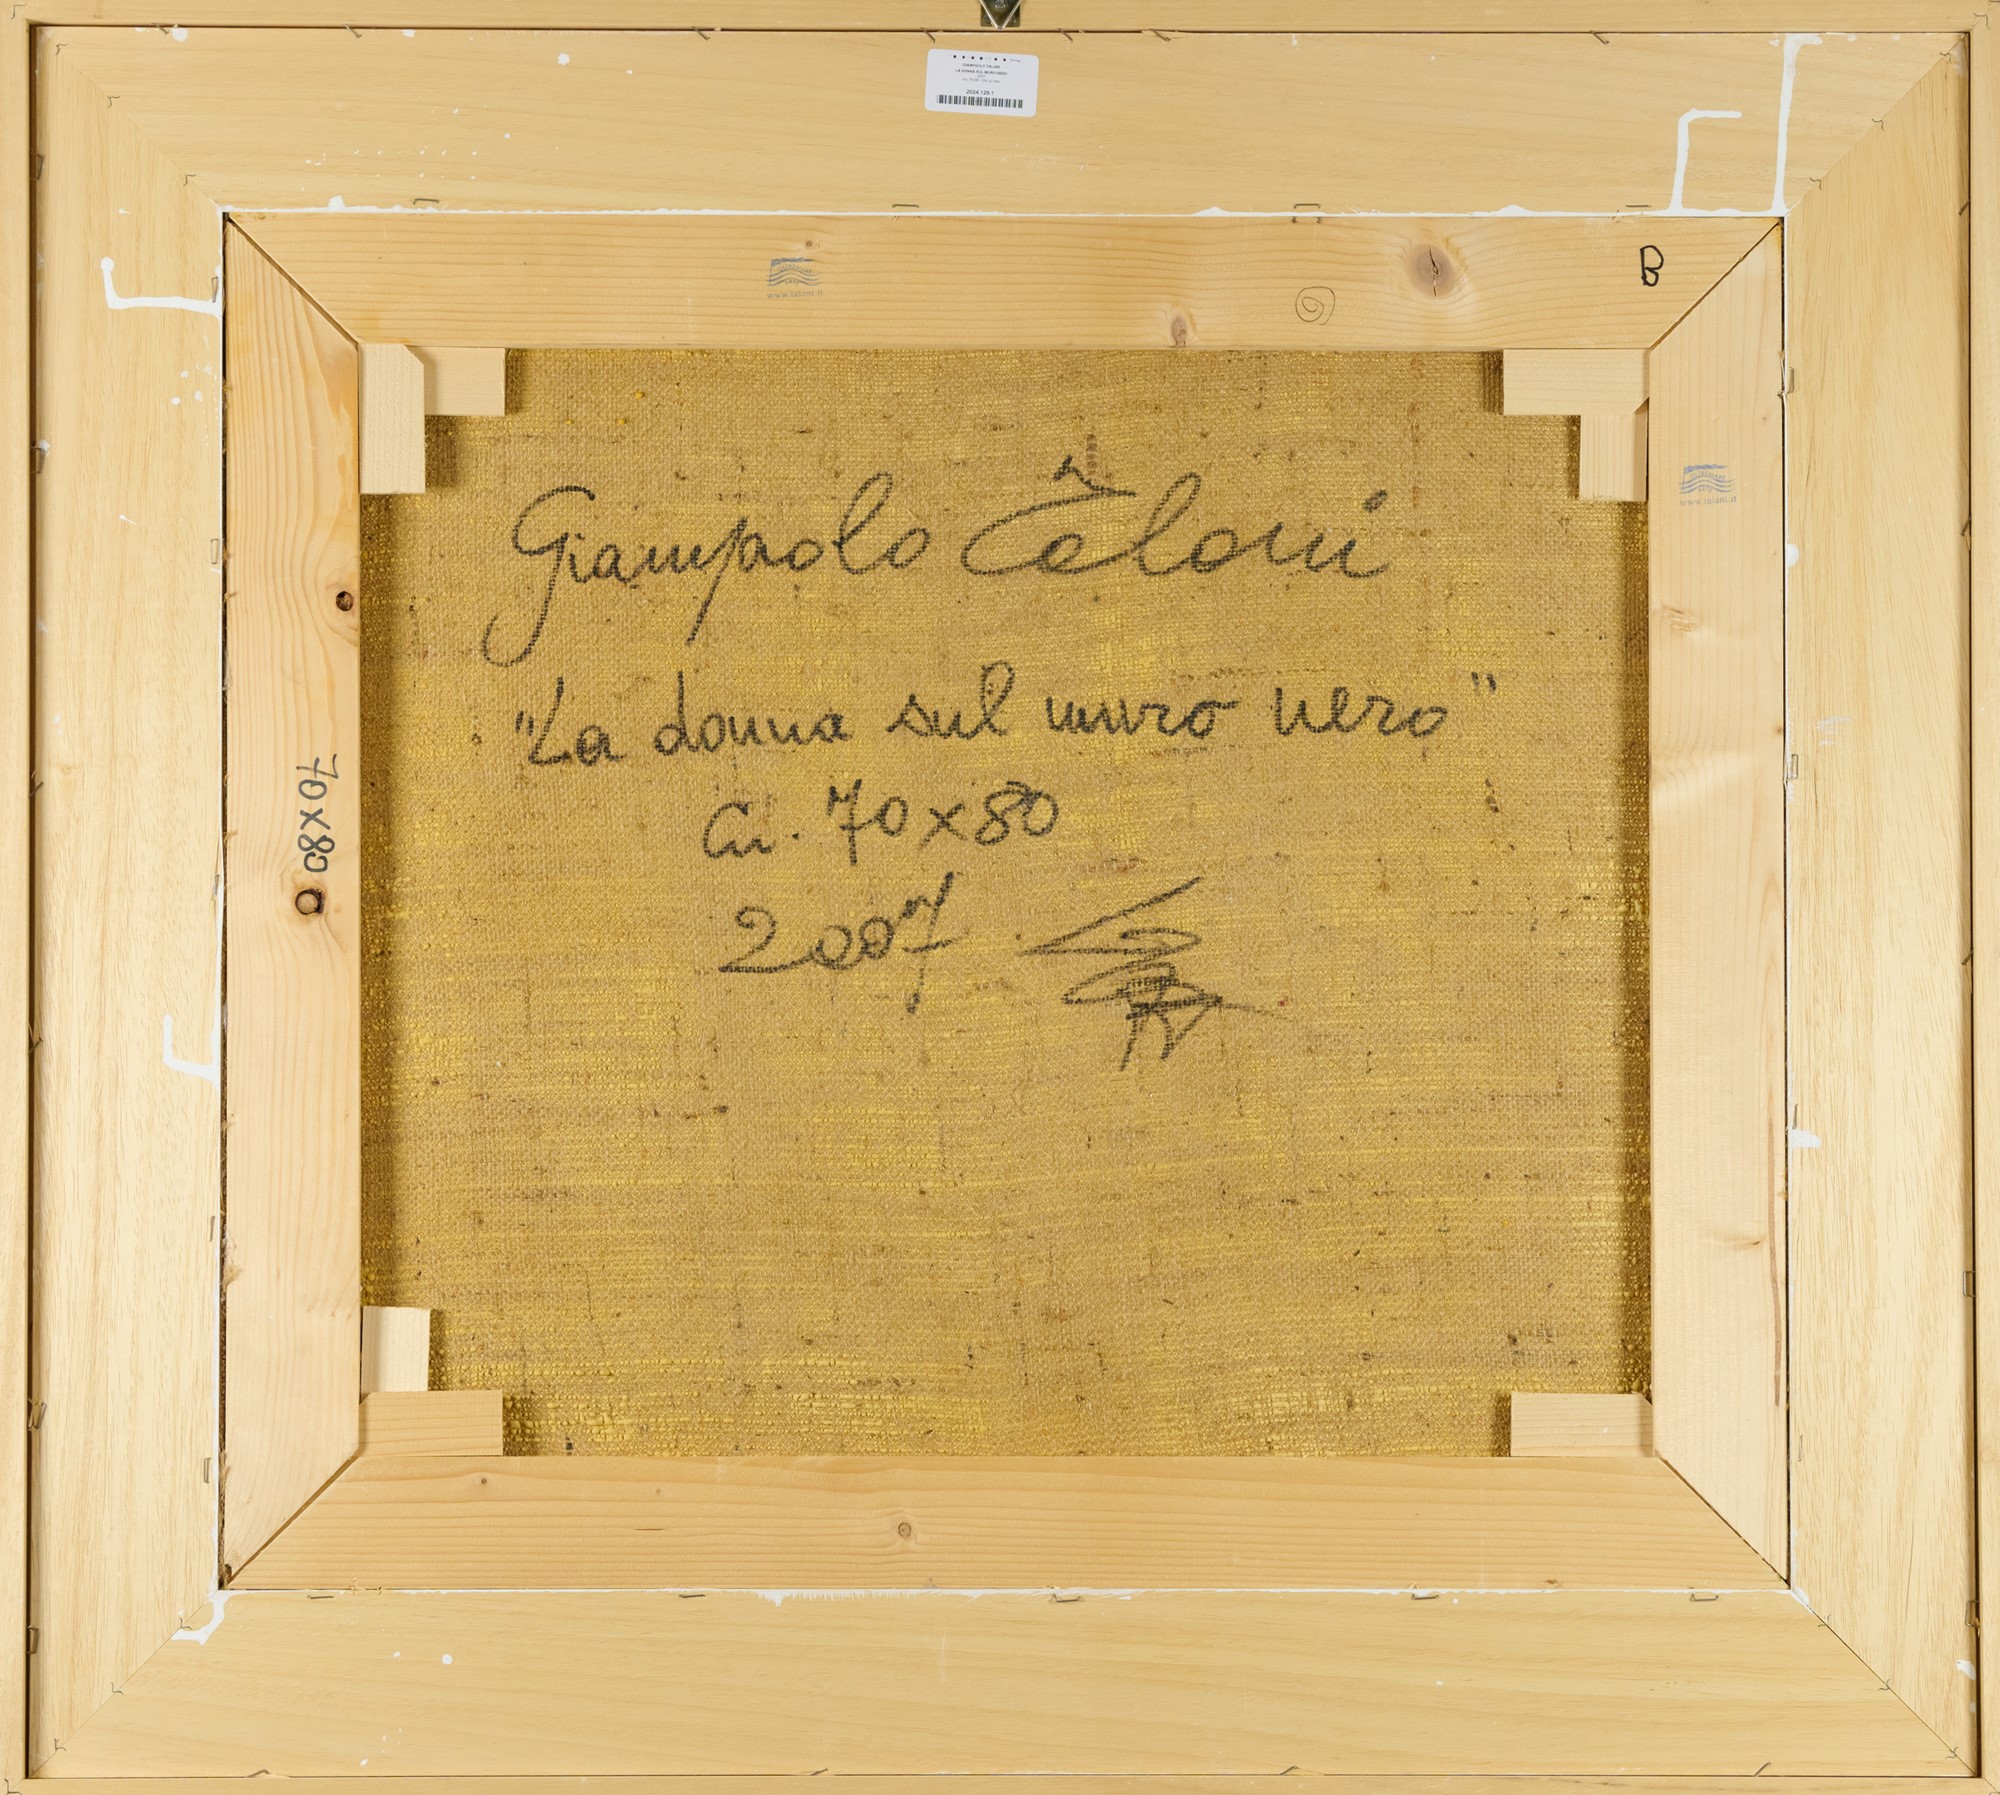 GIAMPAOLO TALANI
LA DONNA SUL MURO NERO
2024.129.1
www.talani.it
B
www.talani.it
Giampaolo Talani
"La donna sul muro nero"
Cm. 70x80
2007
70X80